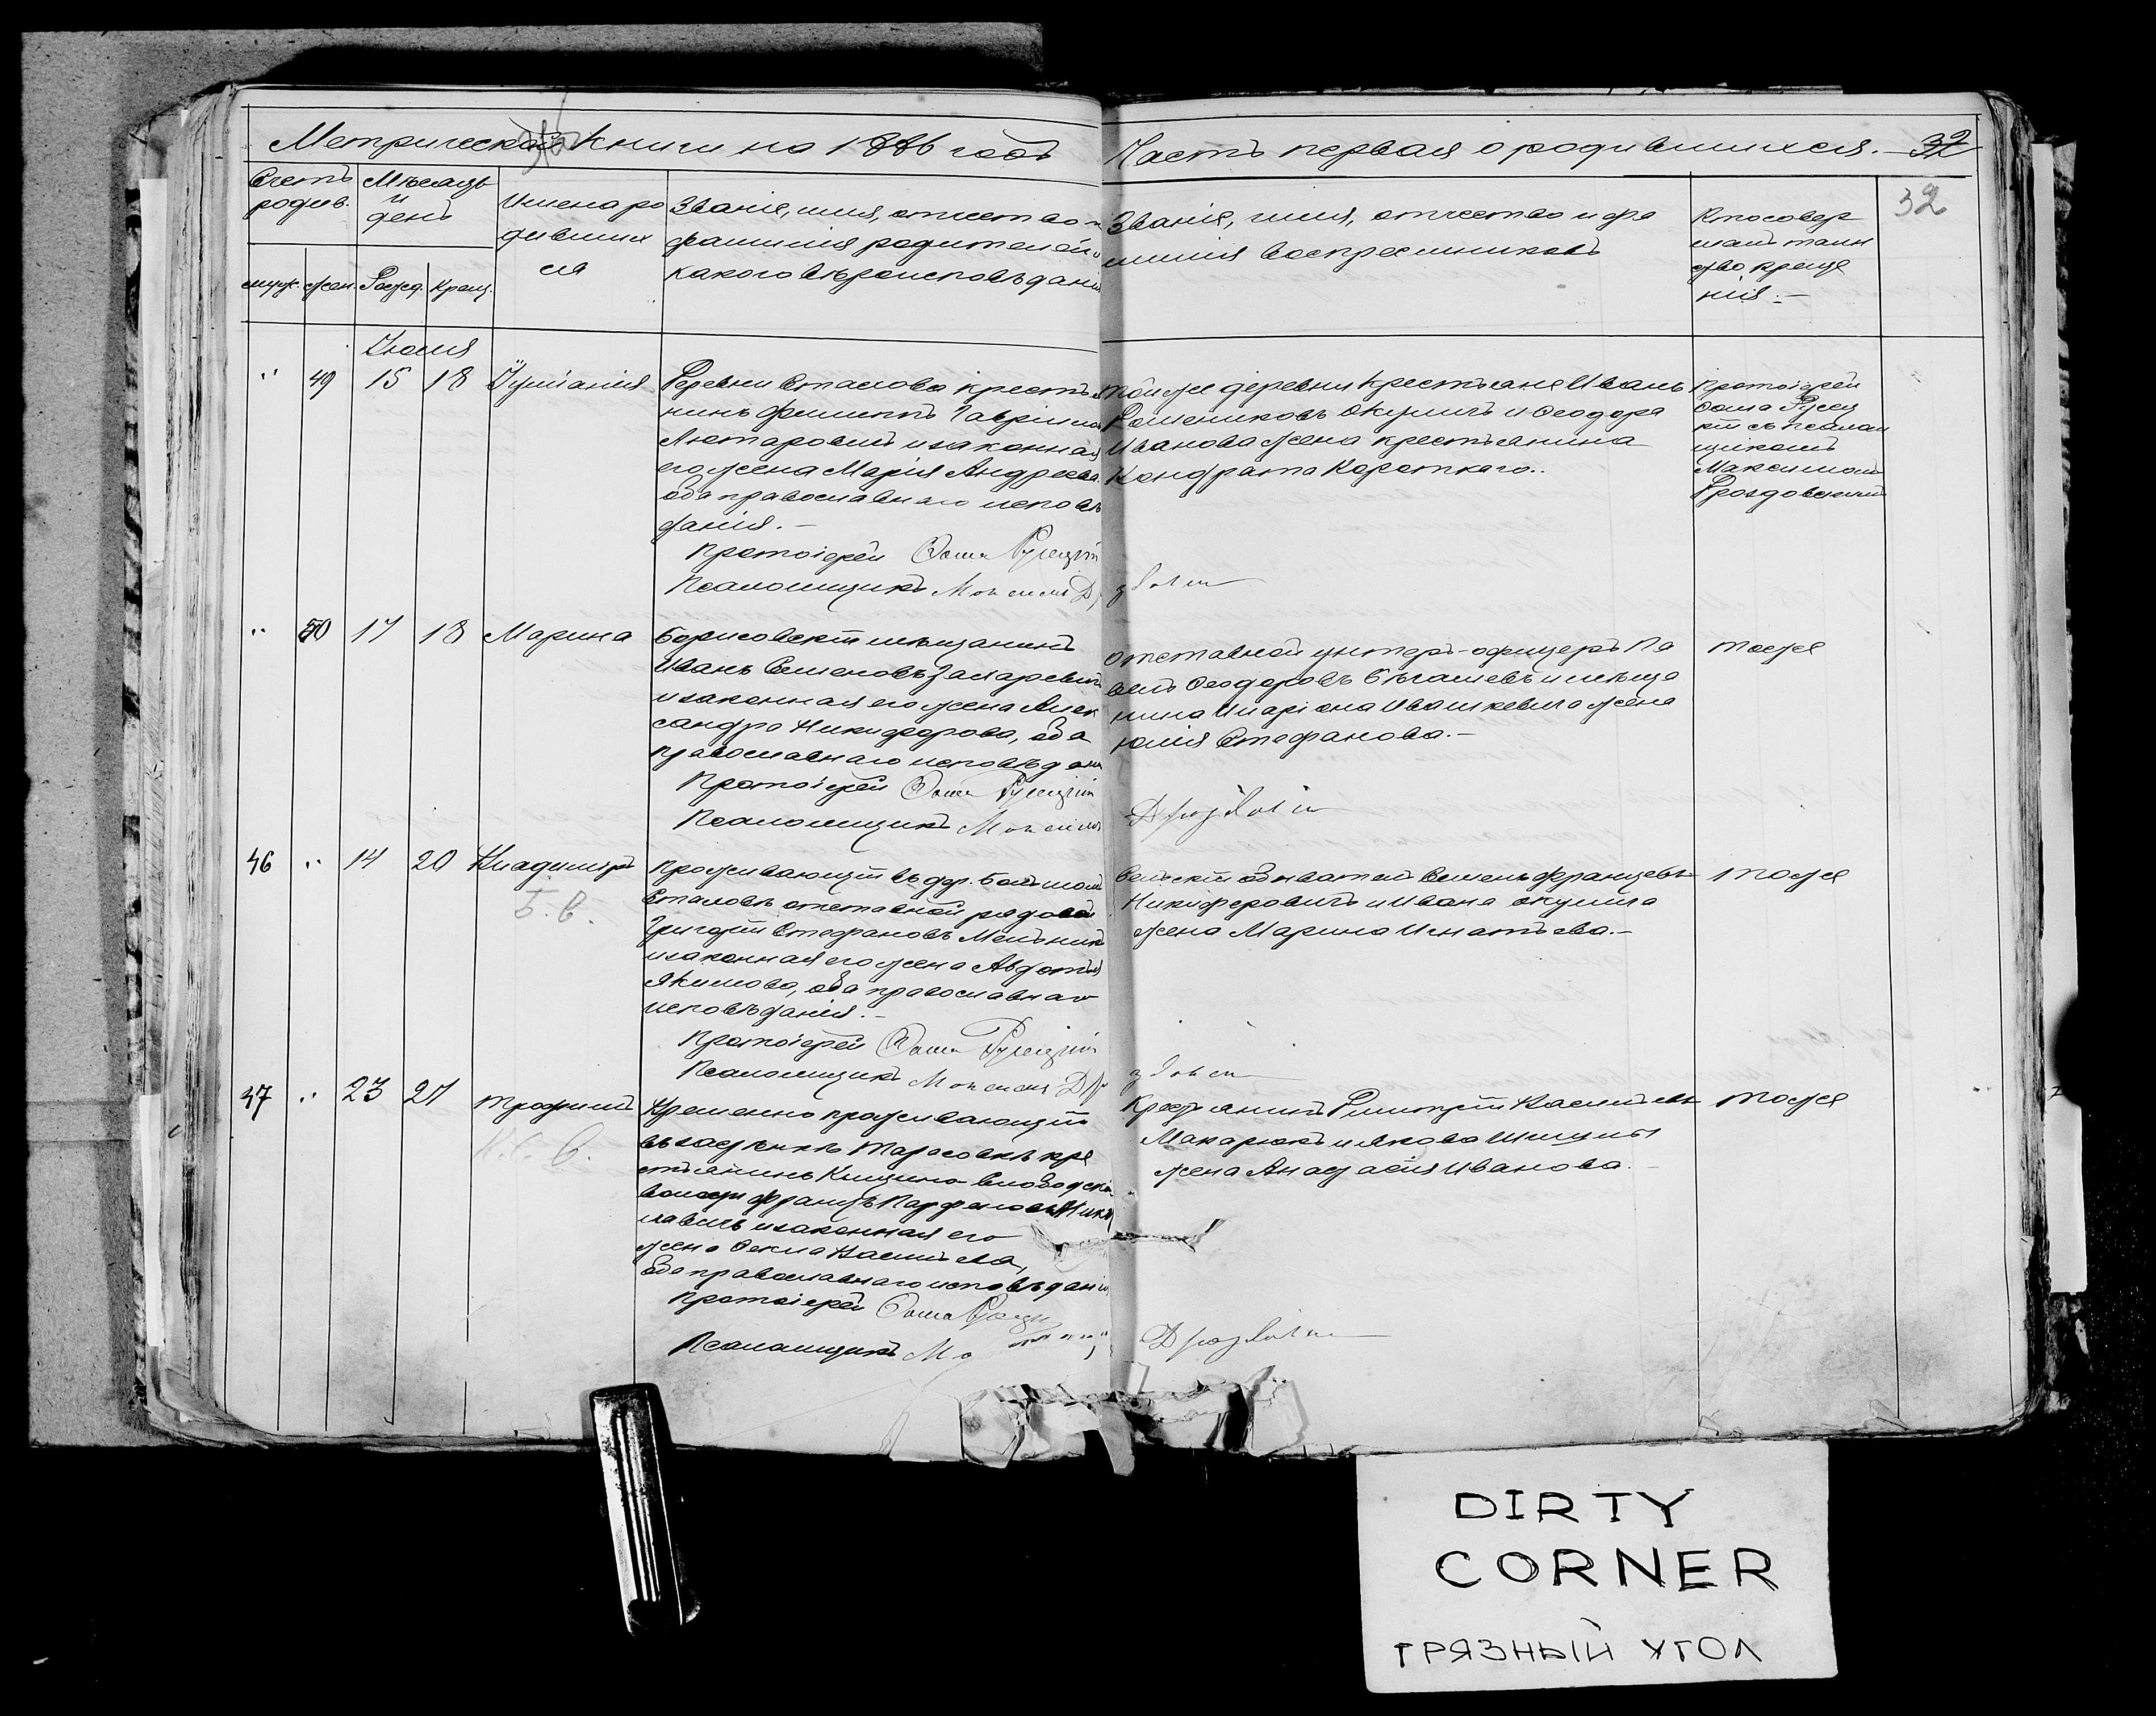 Метрической книги на 1886 годъ
Часть первая о родившихся. 32
32
Счетъ родив.
Мѣсяцъ и день
Имена родившихся
Званіе, имя, отчество и
фамилія родителей и
какого вѣроисповѣданія
Званіе, имя, отчество и фа
милія воспріемниковъ
Кто совер
шалъ таин
ство креще
нія.
муж. жен. Рожд. Крещ.
Іюля
" 49 15 18 Іуліанія
Деревни Сталова крестья
нинъ Филиппъ Гавріиловъ
и законная
его жена Марія Андреева,
оба православнаго исповѣ
данія.
Протоіерей Ѳома Русецкій
Псаломщикъ Максимъ Дроздовскій
Той же деревни крестьяне Иванъ
Окуличъ и Ѳеодора
Иванова жена крестьянина
Кондрата Короткаго.
Протоіерей
Ѳома Русец
кій съ псалом
щикомъ
Максимомъ
Дроздовскимъ
" 50 17 18 Марина
Борисовскій мѣщанинъ
Иванъ Семеновъ Захаревичъ
и законная его жена Алек
сандра Никифорова, оба
православнаго исповѣданія
Протоіерей Ѳома Русецкій
Псаломщикъ Максимъ Дроздовскій
Отставной унтеръ-офицеръ Па
велъ Ѳеодоровъ и мѣща
нина Иларіона Ивашкевича жена
Юлія Стефанова.
тоже
46 " 14 20 Владиміръ
Б. в.
Проживающій въ дер. Большомъ
Сталовѣ отставной рядовой
Григорій Стефановъ Мельникъ
и законная его жена Авдотья
Якимова, оба православнаго
исповѣданія.
Протоіерей Ѳома Русецкій
Псаломщикъ Максимъ Дроздовскій
Сельскій обыватель Семенъ Францевъ
Никиферовичъ и Ивана Окулича
жена Марина Игнатьева.
тоже
47 " 23 27 Трофимъ
Временно проживающій
въ застѣнкѣ Тарасовкѣ кре
стьянинъ Слободской
волости Францъ Парфеновъ
и законная его
жена Ѳекла Васильева,
оба православнаго исповѣданія
Протоіерей Ѳома Русецкій
Псаломщикъ Дроздовскій
Крестьянинъ Димитрій Васильевъ
Макарюкъ и Якова
жена Анастасія Иванова.
тоже
DIRTY
CORNER
ГРЯЗНЫЙ УГОЛ